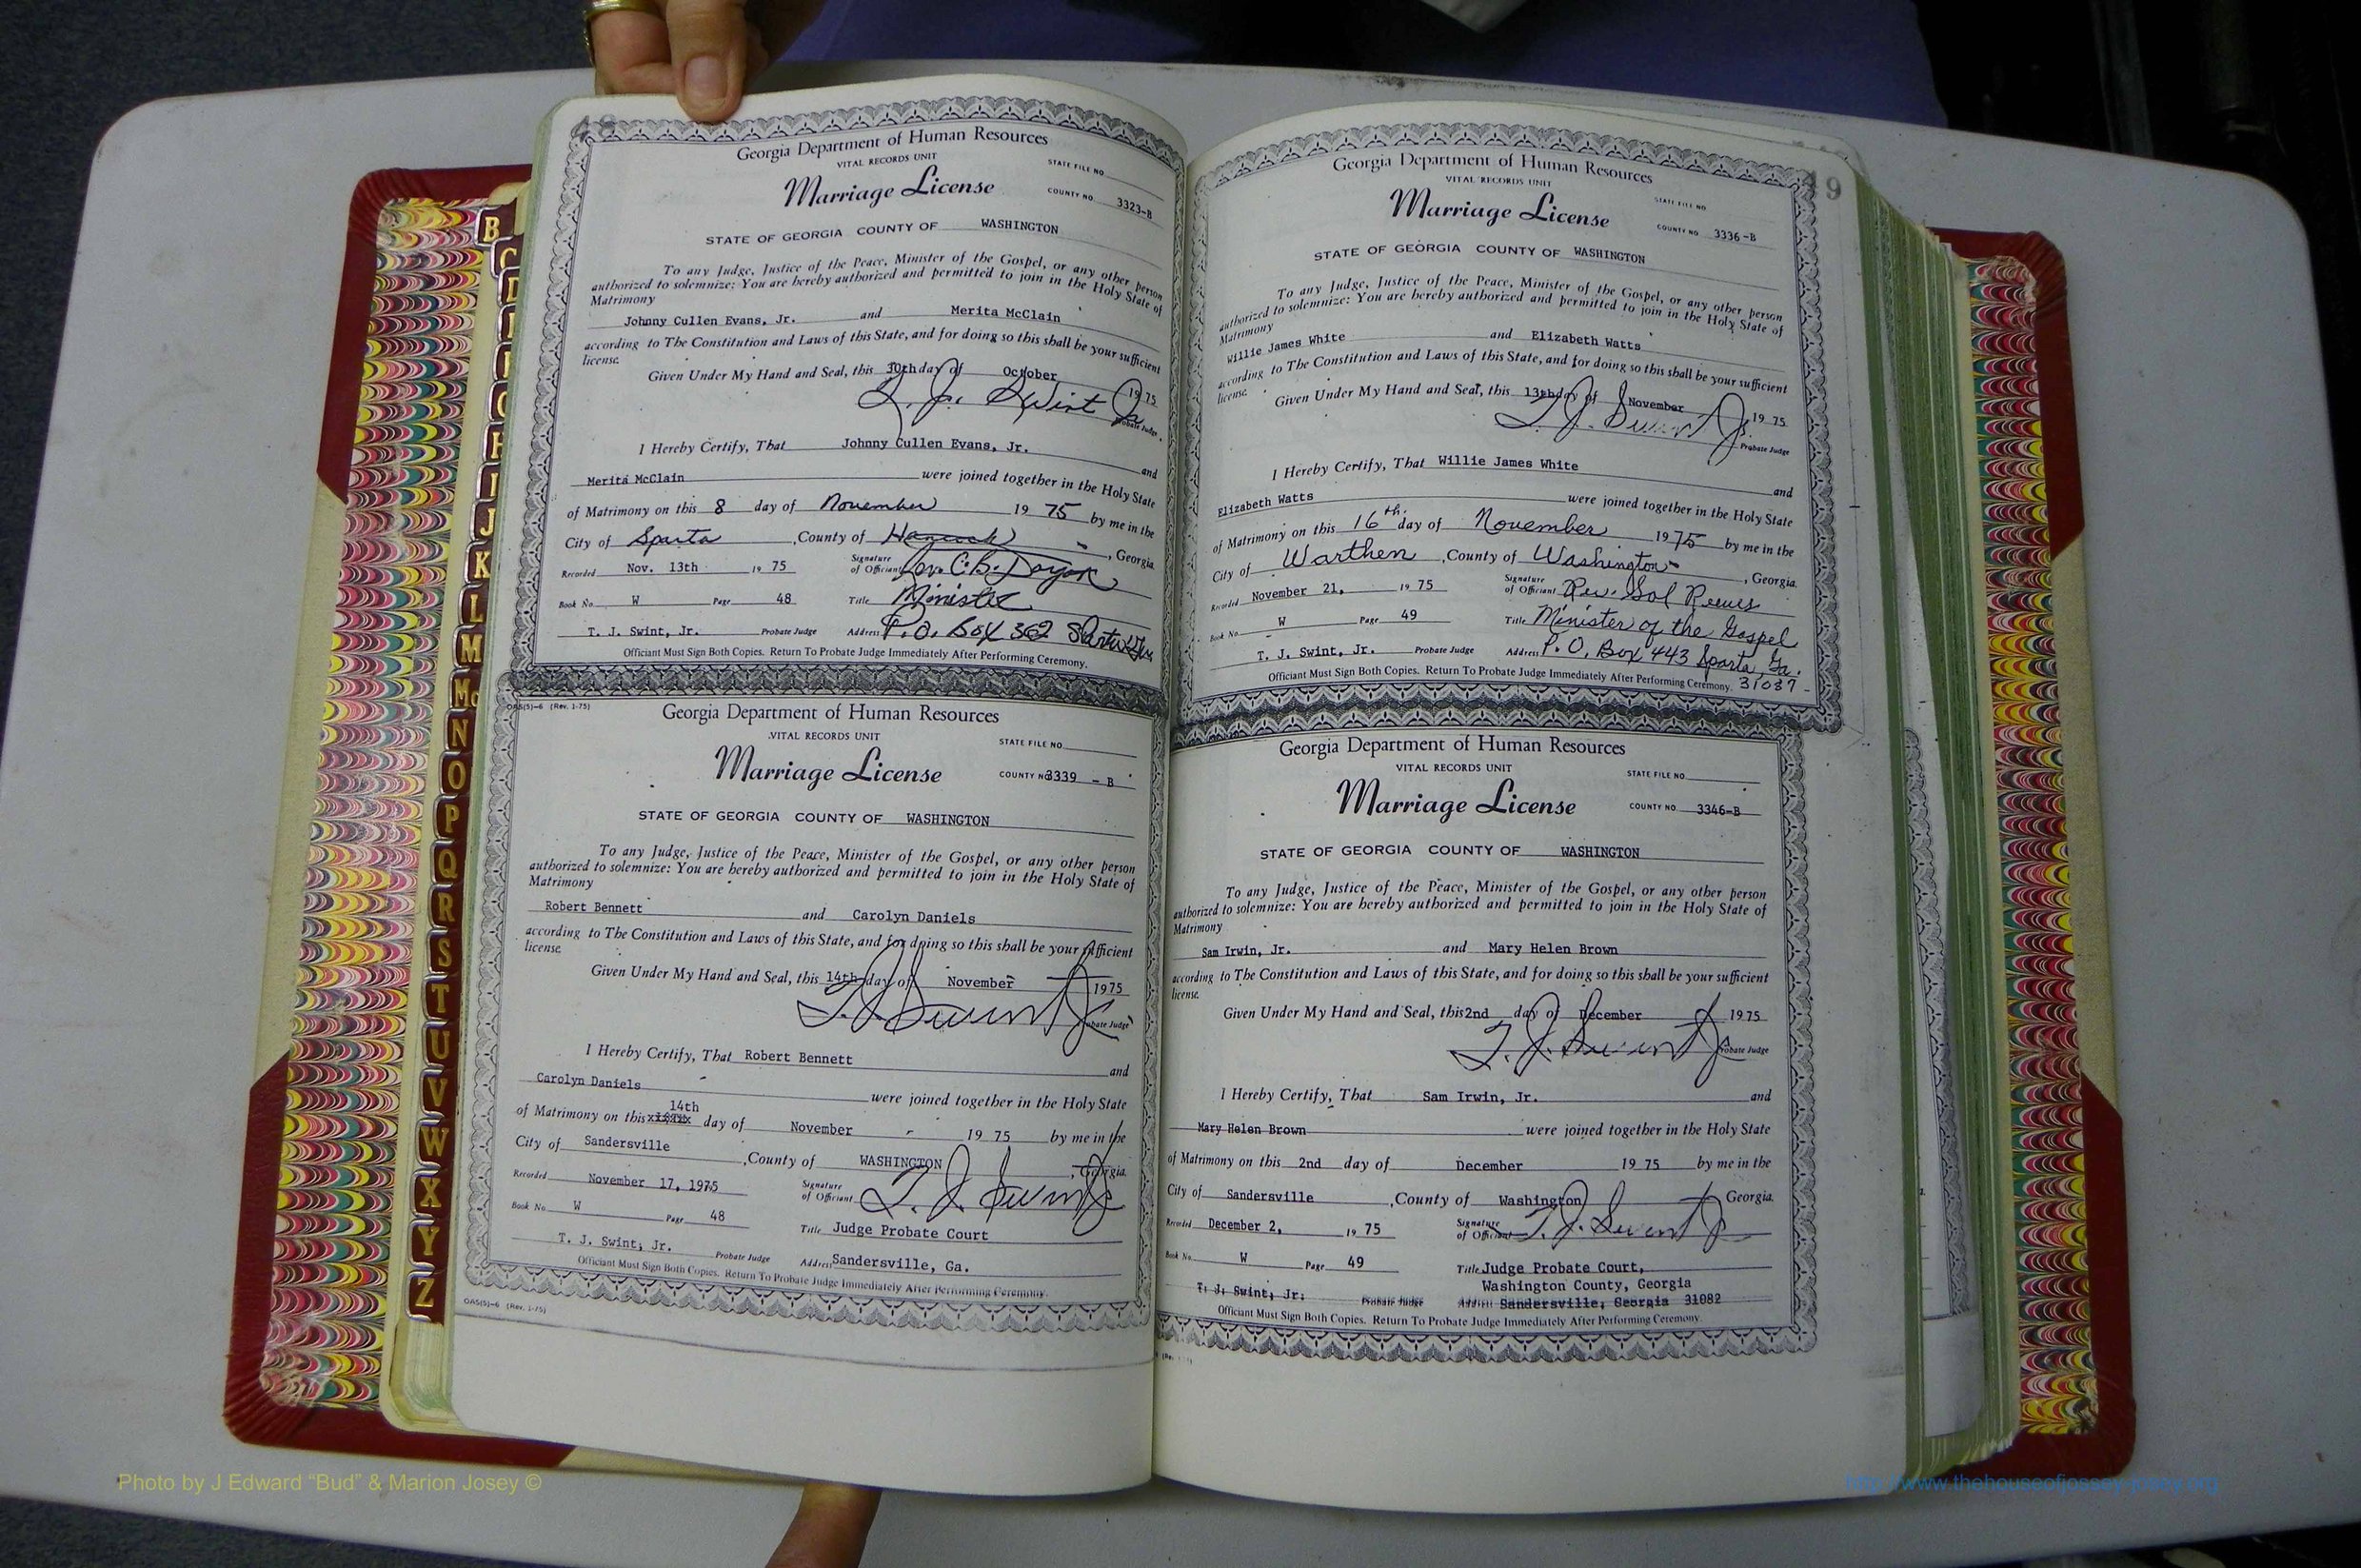 48
Georgia Department of Human Resources
VITAL RECORDS UNIT
STATE FILE NO.
Marriage License
COUNTY NO. 3323-B
STATE OF GEORGIA COUNTY OF WASHINGTON
To any Judge, Justice of the Peace, Minister of the Gospel, or any other person
authorized to solemnize: You are hereby authorized and permitted to join in the Holy State of
Matrimony
Johnny Cullen Evans, Jr. and Merita McClain
according to The Constitution and Laws of this State, and for doing so this shall be your sufficient
license.
Given Under My Hand and Seal, this 30th day of October 1975
T. J. Swint Jr.
Probate Judge
I Hereby Certify, That Johnny Cullen Evans, Jr. and
Merita McClain were joined together in the Holy State
of Matrimony on this 8 day of November 19 75 by me in the
City of Sparta, County of Hancock, Georgia
Recorded Nov. 13th 19 75 Signature of Officiant Rev. C. B.
Book No. W Page 48 Title Minister
T. J. Swint, Jr. Probate Judge Address P.O. Box 362 Sparta Ga
Officiant Must Sign Both Copies. Return To Probate Judge Immediately After Performing Ceremony.
OAS(5)-6 (Rev. 1-75)
Georgia Department of Human Resources
VITAL RECORDS UNIT
STATE FILE NO.
Marriage License
COUNTY NO. 3339 - B
STATE OF GEORGIA COUNTY OF WASHINGTON
To any Judge, Justice of the Peace, Minister of the Gospel, or any other person
authorized to solemnize: You are hereby authorized and permitted to join in the Holy State of
Matrimony
Robert Bennett and Carolyn Daniels
according to The Constitution and Laws of this State, and for doing so this shall be your sufficient
license.
Given Under My Hand and Seal, this 14th day of November 1975
T. J. Swint Jr
Probate Judge
I Hereby Certify, That Robert Bennett and
Carolyn Daniels were joined together in the Holy State
14th
of Matrimony on this day of November 19 75 by me in the
City of Sandersville, County of WASHINGTON, Georgia.
Recorded November 17, 1975 Signature of Officiant T. J. Swint Jr
Book No. W Page 48 Title Judge Probate Court
T. J. Swint, Jr. Probate Judge Address Sandersville, Ga.
Officiant Must Sign Both Copies. Return To Probate Judge Immediately After Performing Ceremony.
OAS(5)-6 (Rev. 1-75)
49
Georgia Department of Human Resources
VITAL RECORDS UNIT
STATE FILE NO.
Marriage License
COUNTY NO. 3336-B
STATE OF GEORGIA COUNTY OF WASHINGTON
To any Judge, Justice of the Peace, Minister of the Gospel, or any other person
authorized to solemnize: You are hereby authorized and permitted to join in the Holy State of
Matrimony
Willie James White and Elizabeth Watts
according to The Constitution and Laws of this State, and for doing so this shall be your sufficient
license.
Given Under My Hand and Seal, this 13th day of November 19 75
T. J. Swint Jr.
Probate Judge
I Hereby Certify, That Willie James White and
Elizabeth Watts were joined together in the Holy State
of Matrimony on this 16th day of November 1975 by me in the
City of Warthen, County of Washington, Georgia.
Recorded November 21, 19 75 Signature of Officiant Rev. Sol Reeves
Book No. W Page 49 Title Minister of the Gospel
T. J. Swint, Jr. Probate Judge Address P. O. Box 443 Sparta, Ga.
Officiant Must Sign Both Copies. Return To Probate Judge Immediately After Performing Ceremony. 31087
Georgia Department of Human Resources
VITAL RECORDS UNIT
STATE FILE NO.
Marriage License
COUNTY NO. 3346-B
STATE OF GEORGIA COUNTY OF WASHINGTON
To any Judge, Justice of the Peace, Minister of the Gospel, or any other person
authorized to solemnize: You are hereby authorized and permitted to join in the Holy State of
Matrimony
Sam Irwin, Jr. and Mary Helen Brown
according to The Constitution and Laws of this State, and for doing so this shall be your sufficient
license.
Given Under My Hand and Seal, this 2nd day of December 1975
T. J. Swint Jr
Probate Judge
I Hereby Certify, That Sam Irwin, Jr. and
Mary Helen Brown were joined together in the Holy State
of Matrimony on this 2nd day of December 19 75 by me in the
City of Sandersville, County of Washington Georgia.
Recorded December 2, 19 75 Signature of Officiant T. J. Swint Jr
Book No. W Page 49 Title Judge Probate Court,
Washington County, Georgia
T. J. Swint, Jr. Probate Judge Address Sandersville, Georgia 31082
Officiant Must Sign Both Copies. Return To Probate Judge Immediately After Performing Ceremony.
B
C
D
H
I
J
K
L
M
Mc
N
O
P
Q
R
S
T
U
V
W
X
Y
Z
Photo by J Edward “Bud” & Marion Josey ©
http://www.thehouseofjossey-josey.org